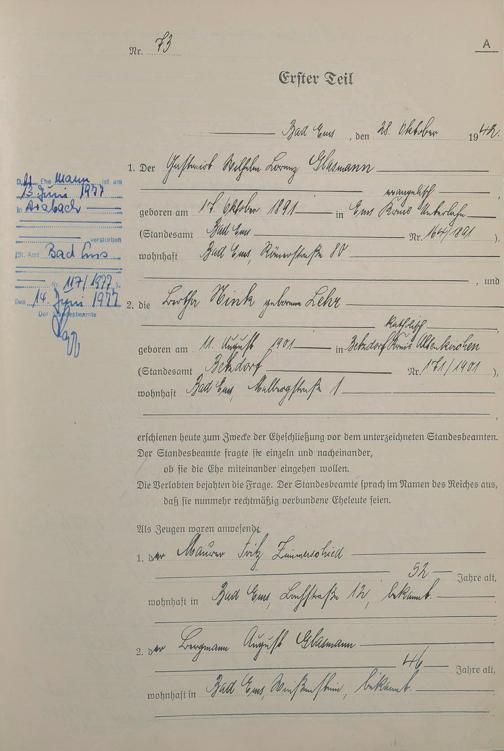 Nr. 73
A
Erster Teil
Bad Ems, den 28. Oktober 1942
1. Der Gastwirt Wilhelm Lorenz Glasmann
evangelisch
geboren am 17. Oktober 1891 in Ems Kreis Unterlahn
(Standesamt Bad Ems Nr. 164/1891),
wohnhaft Bad Ems, Römerstraße 80
, und
2. die Bertha Wink geborene Lehr
katholisch
geboren am 11. August 1901 in Betzdorf Kreis Altenkirchen
(Standesamt Betzdorf Nr. 171/1901),
wohnhaft Bad Ems, Malbergstraße 1
erschienen heute zum Zwecke der Eheschließung vor dem unterzeichneten Standesbeamten.
Der Standesbeamte fragte sie einzeln und nacheinander,
ob sie die Ehe miteinander eingehen wollen.
Die Verlobten bejahten die Frage. Der Standesbeamte sprach im Namen des Reiches aus,
daß sie nunmehr rechtmäßig verbundene Eheleute seien.
Als Zeugen waren anwesend:
1. der Maurer Fritz Zimmerschied
52 Jahre alt,
wohnhaft in Bad Ems, 12, bekannt
2. der Bergmann August Glasmann
46 Jahre alt,
wohnhaft in Bad Ems, Weißenstein, bekannt
Ehe Mann ist am
13. Juni 1977
in Arzbach
verstorben
(St. Amt Bad Ems
Nr. 117/1977).
Den 14. Juni 1977
Der Standesbeamte